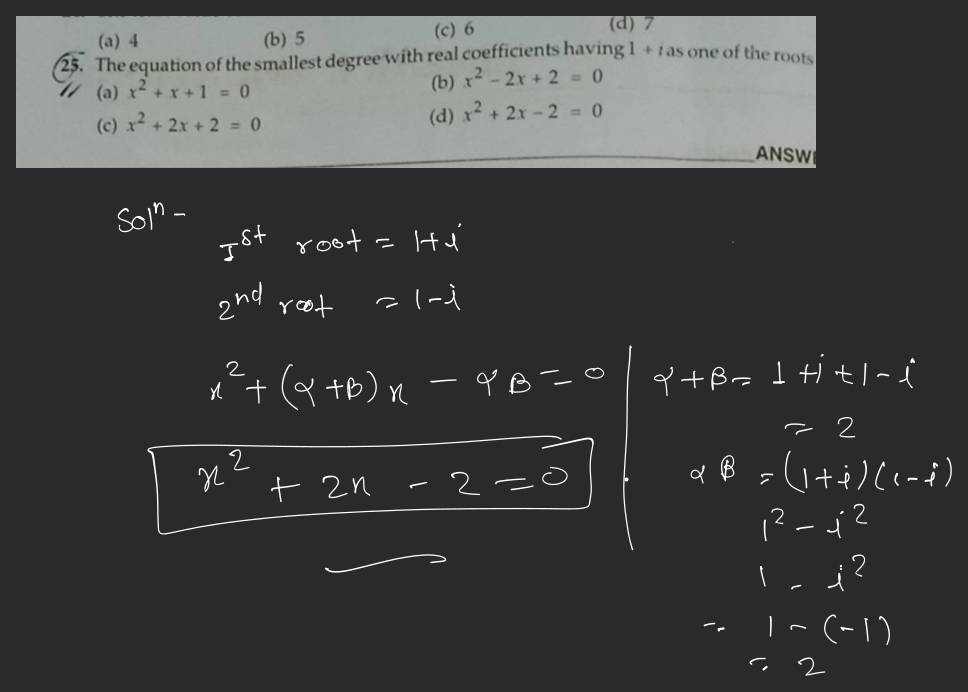 (a) 4 (b) 5 (c) 6 (d) 7
25. The equation of the smallest degree with real coefficients having 1 + i as one of the roots
(a) x² + x + 1 = 0 (b) x² - 2x + 2 = 0
(c) x² + 2x + 2 = 0 (d) x² + 2x - 2 = 0
ANSW
Solⁿ -
Ist root = 1+i
2nd root = 1-i
x² + (α+β)x - αβ = 0
x² + 2x - 2 = 0
α+β = 1+i+1-i
= 2
αβ = (1+i)(1-i)
1² - i²
1 - i²
= 1 - (-1)
= 2